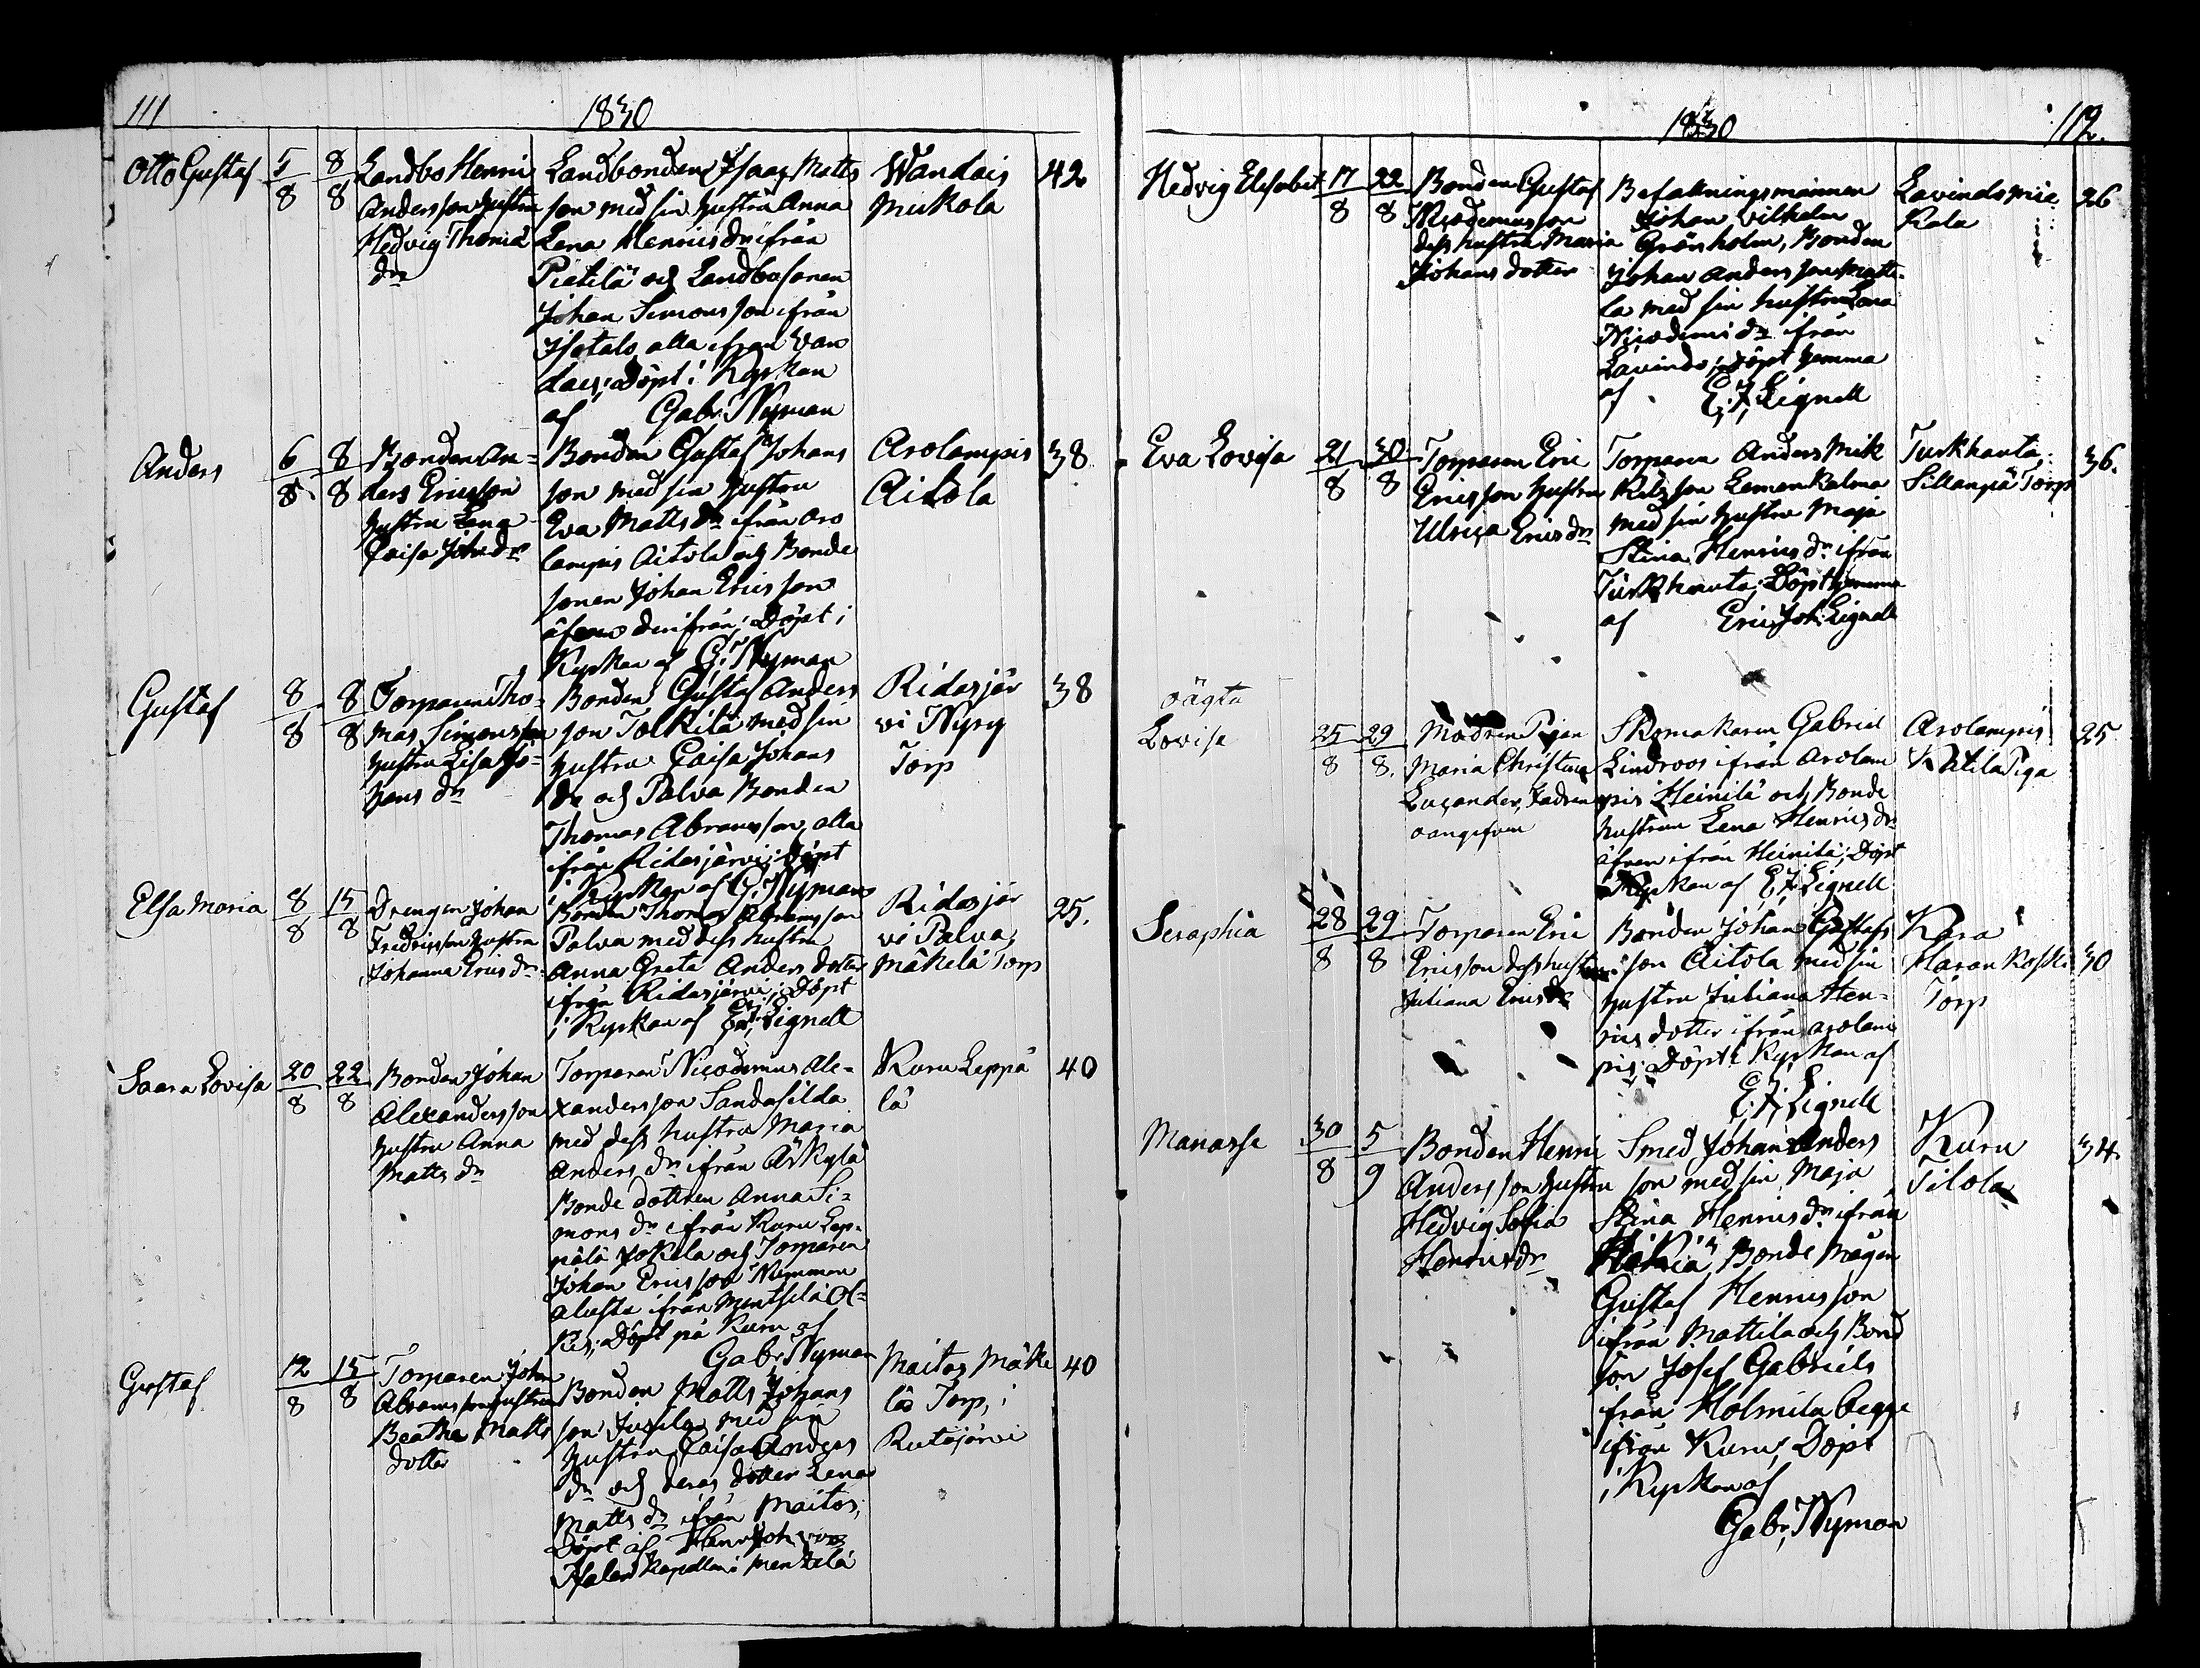 111
1830
Otto Gustaf
5/8
8/8
Landbo Henric
Andersson hustru
Hedvig Thomæ
dr
Landbonden Isaac Matts
son med sin hustru Anna
Lena Henricsdr ifrån
Pietilä och Landbosonen
Johan Simonsson ifrån
Isotalo alla ifrån Van
dais; döpt i Kyrkan
af Gabr. Nyman
Wandais
Mukola
42
Anders
6/8
8/8
Bonden An=
ders Ericsson
hustru Lena
Caisa Joh dr
Bonden Gustaf Johans
son med sin hustru
Eva Matts dr ifrån Aro
lampis Aitola och Bonde
sonen Johan Ericsson
äfven derifrån; Döpt i
Kyrkan af G. Nyman
Arolampis
Aitola
38
Gustaf
8/8
8/8
Torparen Tho=
mas Simonsson
hustru Lisa Jo=
hans dr
Bonden Gustaf Anders
son Tolkilä med sin
hustru Caisa Johans
dr och Palva Bonden
Thomas Abramsson, alla
ifrån Ridasjärvi; Döpt
i Kyrkan af G. Nyman
Ridasjär
vi Nyby
Torp
38
Elsa Maria
8/8
15/8
Drengen Johan
Fredricsson hustru
Johanna Erics dr
Bonden Thomas Abramsson
Palva med dess hustru
Anna Greta Anders dotter
ifrån Ridasjärvi; Döpt
i Kyrkan af E. J. Lignell
Ridasjär
vi Palva,
Mäkelä Torp
25.
Saara Lovisa
20/8
22/8
Bonden Johan
Alexandersson
hustru Anna
Matts dr
Torparen Nicodemus Ale=
xandersson Sandasilda
med dess hustru Maria
Anders dr ifrån Arkylä
Bonde dottren Anna Si=
mons dr ifrån Kuru Lep=
pälä Jokela och Torparen
Johan Ericsson Nummen
alusta ifrån Mentsilä Ol=
kis; Döpt på Kuru af
Gabr. Nyman
Kuru Leppä
lä
40
Gustaf
12/8
15/8
Torparen Johan
Abramsson hustru
Beatha Matts
dotter
Bonden Matts Johans
son Jusila med sin
hustru Caisa Anders
dr och deras dotter Lena
Matts dr ifrån Maitos;
Döpt af Henr Joh von
Pfaler kapellan i Mentzelä
Maitos Mäke
lä Torp, i
Rutajärvi
40
1830
112.
Hedvig Elisabet
17/8
22/8
Bonden Gustaf
Nicodemusson
dess hustru Maria
Johans dotter
Befallningsmannen
Johan Vilhelm
Grönholm, Bonden
Johan Andersson Matti-
la med sin hustru Lena
Nicodemi dr ifrån
Lavinds; döpt hemma
af E. J. Lignell
Lavinds Mie
Kala
26
Eva Lovisa
21/8
30/8
Torparen Eric
Ericsson hustru
Ulrica Erics dr
Torparen Anders Mik
kelsson Lemenkalma
med sin hustru Maja
Stina Henrics dr ifrån
Turkhauta; Döpt hemma
af Eric Joh: Lignell
Turkhauta,
Sillanpä Torp
36.
oägta
Lovisa
25/8
29/8.
Modren Pigan
Maria Christina
Lucander, Fadren
oangifven
Skomakaren Gabriel
Lindroos ifrån Arolam
pis Heinilä och Bonde
hustrun Lena Henrics dr
äfven ifrån Heinilä; Döpt
i Kyrkan af E. J. Lignell
Arolampis
Katila Piga
25
Seraphia
28/8
29/8
Torparen Eric
Ericsson dess hustru
Juliana Erics dr
Bonden Johan Gustafs
son Aitola med sin
hustru Juliana Hen=
rics dotter ifrån Arolam
pis; Döpt i Kyrkan af
E. J. Lignell
Kara
Haran Koski
Torp
30
Manasse
30/8
5/9
Bonden Henric
Andersson hustru
Hedvig Sofia
Henrics dr
Smed Johan Anders
son med sin Maja
Stina Henrics dr ifrån
Bonde Mågen
Gustaf Henricsson
ifrån Mattila och Bond
son Josef Gabriels
från Holmila begge
ifrån Kuru, Döpt
i Kyrkan af
Gabr. Nyman
Kuru
Tilola
34.